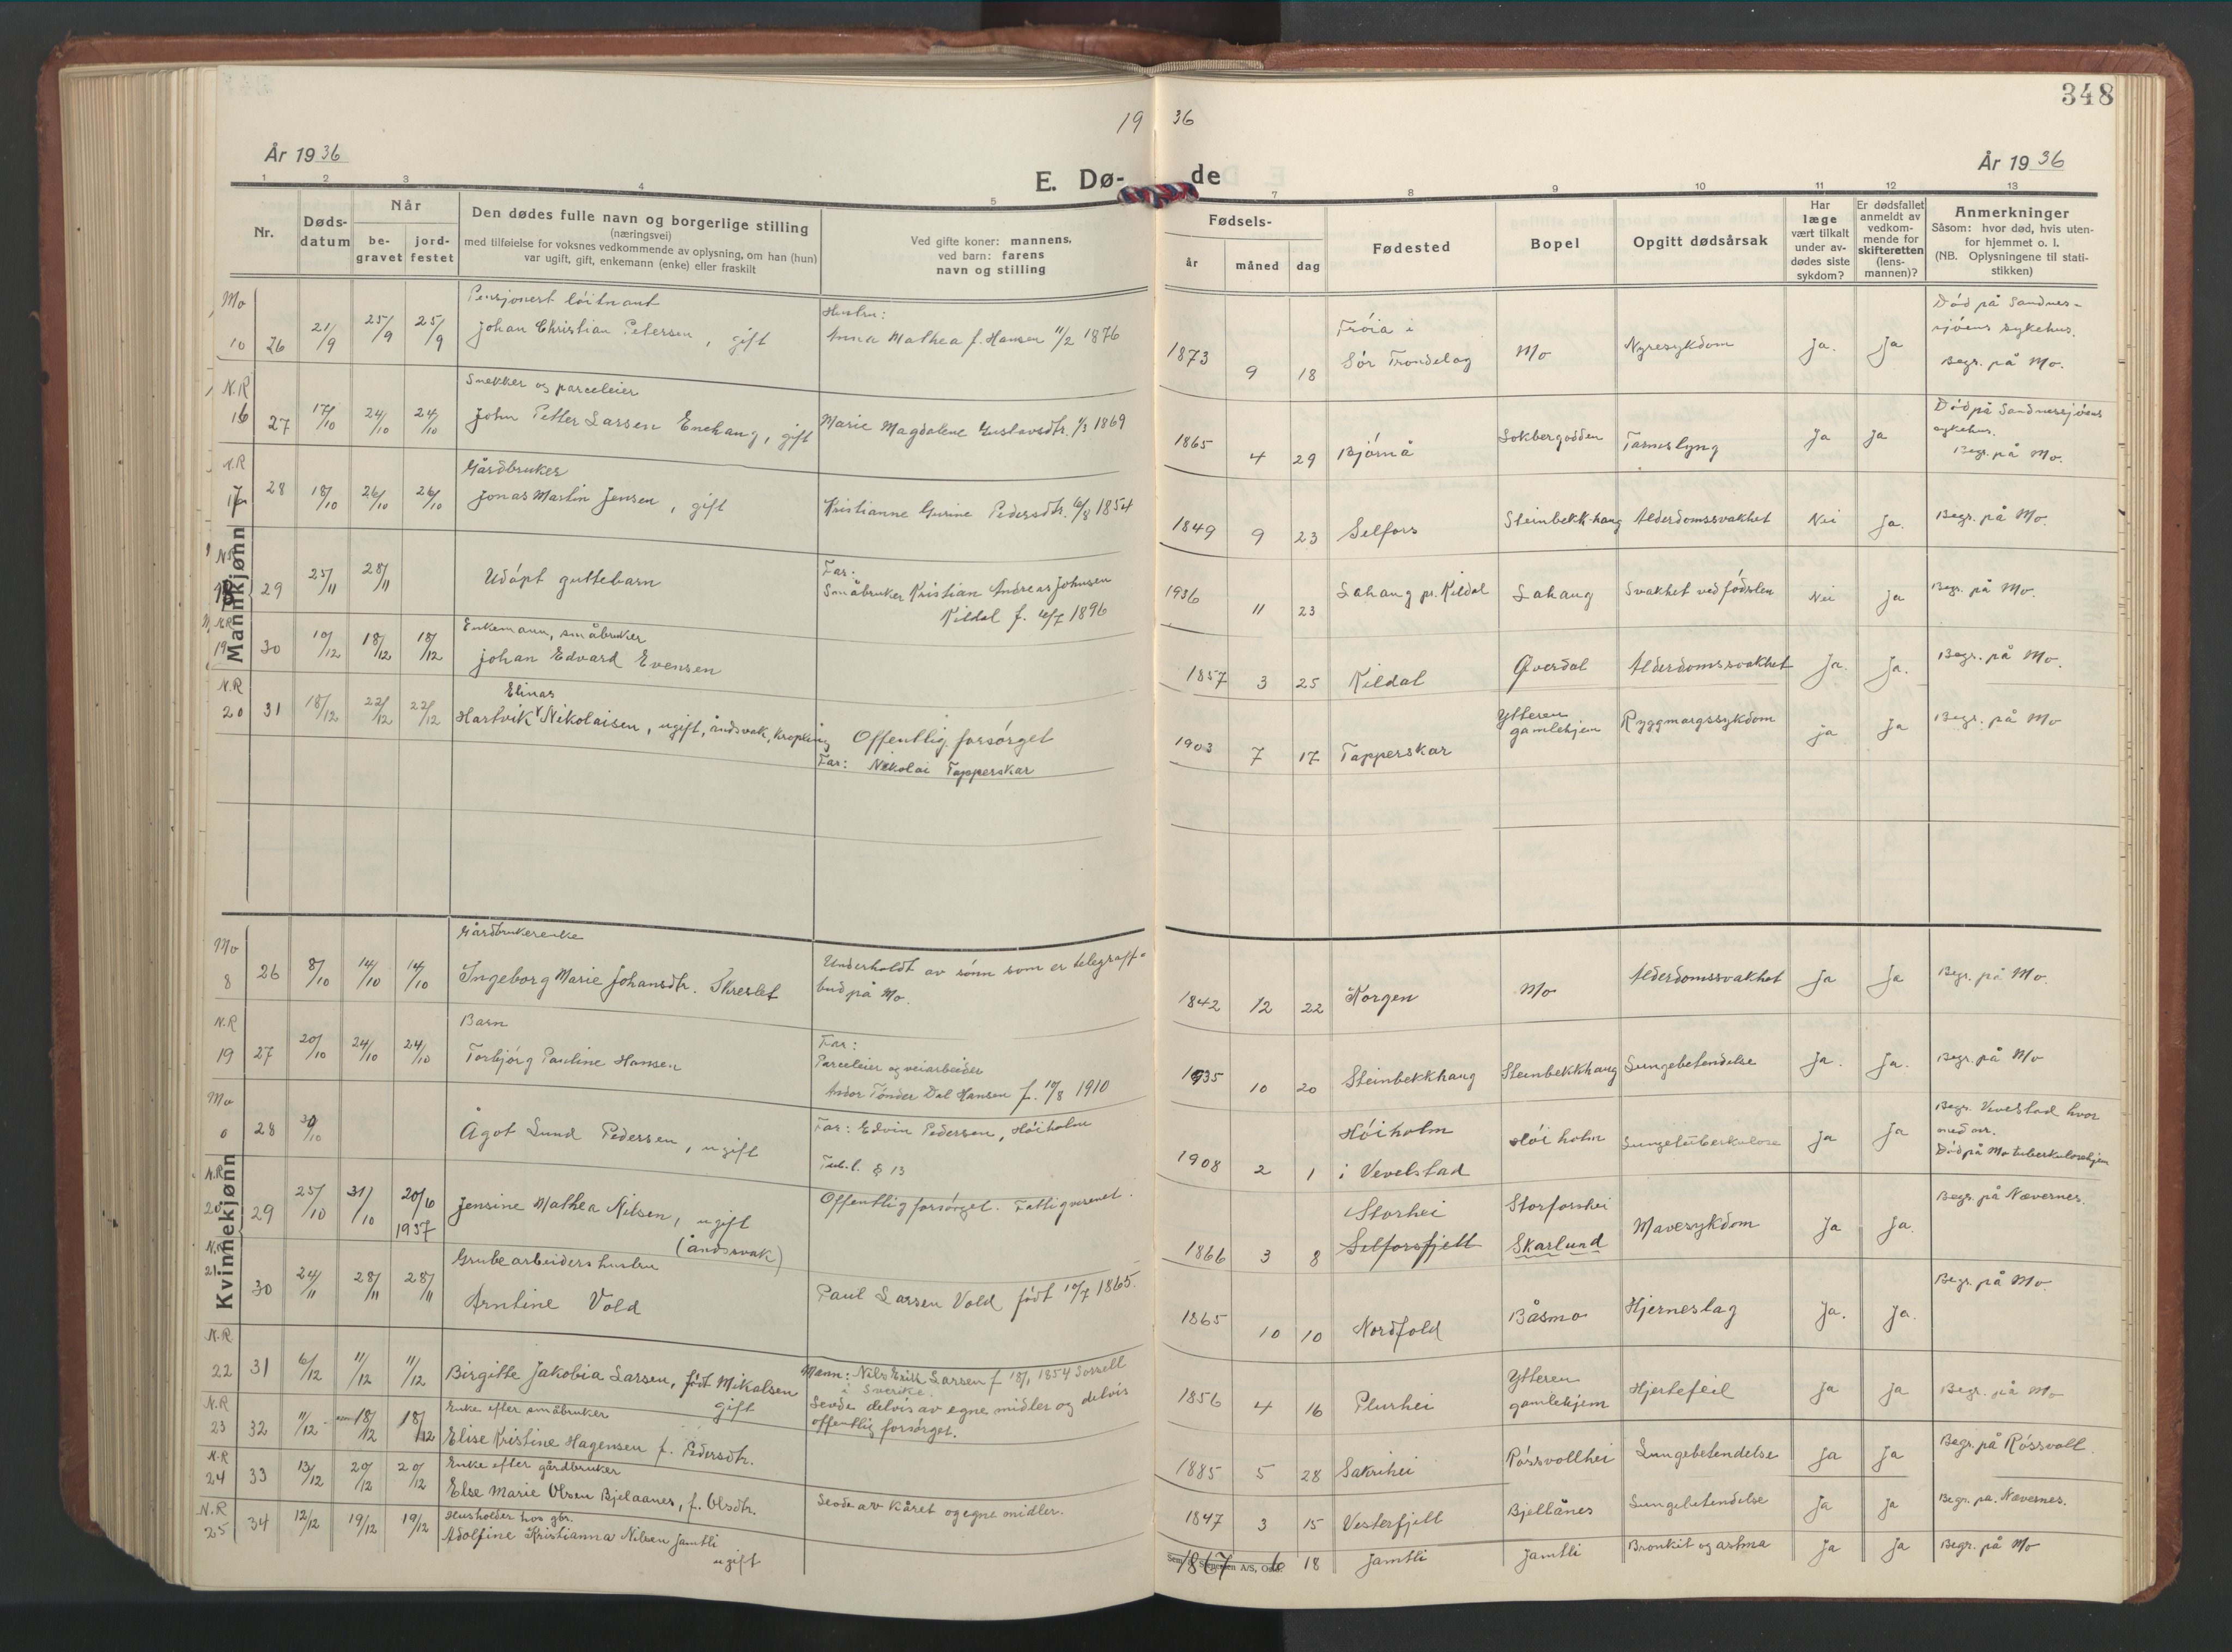 348
19 36
År 1936
År 1936
E. Dø-de
1 2 3 4 5 7 8 9 10 11 12 13
Nr.
Døds-datum
Når
be-gravet
jord-festet
Den dødes fulle navn og borgerlige stilling
(næringsvei)
med tilføielse for voksnes vedkommende av oplysning, om han (hun)
var ugift, gift, enkemann (enke) eller fraskilt
Ved gifte koner: mannens,
ved barn: farens
navn og stilling
Fødsels-
år måned dag
Fødested
Bopel
Opgitt dødsårsak
Har læge vært tilkalt under av-dødes siste sykdom?
Er dødsfallet anmeldt av vedkom-mende for skifteretten (lens-mannen)?
Anmerkninger
Såsom: hvor død, hvis uten-
for hjemmet o. l.
(NB. Oplysningene til stati-
stikken)
Mannkjønn
Mo 10 26 21/9 25/9 25/9
Pensjonert löitnant
Johan Christian Petersen, gift
Hustru:
Anna Mathea f. Hansen 11/2 1876
1873 9 18
Fróia i
Sór Trondelag
Mo Nyresykdom Ja. Ja
Död på Sandnes-
sjóens sykehus.
Begr. på Mo.
N.R 16 27 17/10 24/10 24/10
Snekker og parceleier
John Petter Larsen Enehaug, gift
Marie Magdalene Gustavsdtr. 1/3 1869
1865 4 29 Bjórnå Sokbergodden Tarmslyng Ja Ja
Död på Sandnessjóens
sykehus.
Begr. på Mo.
N.R 17 28 18/10 26/10 26/10
Gårdbruker
Jonas Martin Jensen, gift
Kristianne Gurine Pedersdtr. 6/8 1854
1849 9 23 Selfors Steinbekkhaug Alderdomssvakhet Nei Ja. Begr. på Mo.
N.R 18 29 25/11 28/11
Udópt guttebarn
Far:
Småbruker Kristian Andreas Johnsen
Kildal f. 6/7 1896
1936 11 23 Lahaug pr. Kildal Lahaug Svakhet ved födslen Nei Ja Begr. på Mo.
N.R 19 30 10/12 18/12 18/12
Enkemann, småbruker
Johan Edvard Evensen
1857 3 25 Kildal Øverdal Alderdomssvakhet Ja. Ja. Begr. på Mo.
N.R 20 31 18/12 22/12 22/12
Elinas
Hartvik Nikolaisen, ugift, åndsvak, krøpling
Offentlig forsórget
Far: Nikolai Tapperskar
1903 7 17 Tapperskar
Ytteren
gamlehjem
Ryggmargssykdom ja Ja Begr. på Mo
Kvinnekjønn
Mo 8 26 8/10 14/10 14/10
Gårdbrukerenke
Ingeborg Marie Johansdtr. Skreslet
Underholdt av sónn som er telegraff-
bud på Mo.
1842 12 22 Korgen Mo Alderdomssvakhet Ja Ja Begr. på Mo.
N.R 19 27 20/10 24/10 24/10
Barn
Torbjórg Pauline Hansen
Far:
Parceleier og veiarbeider
Andor Tónder Dal Hansen f. 10/8 1910
1935 10 20 Steinbekkhaug Steinbekkhaug Lungebetendelse Ja. Ja. Begr. på Mo
Mo 0 28 30/10
Ågot Lund Pedersen, ugift
Far: Edvin Pedersen, Hóiholm
Tub.l. § 13
1908 2 1
Hóiholm
i Vevelstad
Hóiholm Lungetuberkulose Ja Ja
Begr. Vevelstad hvor
medor.
Död på Mo tuberkulosehjem
N.R 20 29 25/10 31/10 20/6 1937
Jensine Mathea Nilsen, ugift
(åndssvak)
Offentlig forsórget. Fattigvesenet.
1866 3 8
Storhei
Selforsfjell
Storforshei
Skarlund
Mavesykdom Ja Ja. Begr. på Nævernes.
N.R 21 30 24/11 28/11 28/11
Grubearbeiders hustru
Arntine Vold
Paul Larsen Vold födt 10/7 1865.
1865 10 10 Nordfold Båsmo Hjerneslag Ja. Ja. Begr. på Mo.
N.R 22 31 6/12 11/12 11/12
Birgitte Jakobia Larsen, födt Mikalsen
gift
Mann: Nils Erik Larsen f 18/1 1854 Sorsell
i Sverike.
Levde delvis av egne midler og delvis
offentlig forsórget.
1856 4 16 Plurhei
Ytteren
gamlehjem
Hjertefeil Ja Ja Begr. på Mo
N.R 23 32 11/12 18/12 18/12
Enke efter småbruker
Elise Kristine Hagensen f. Pedersdtr.
1885 5 28 Sakrihei Róssvollhei Lungebetendelse Ja Ja Begr. på Róssvoll.
N.R 24 33 13/12 20/12 20/12
Enke efter gårdbruker
Else Marie Olsen Bjelaanes, f. Olsdtr.
Levde av kåret og egne midler.
1847 3 15 Vesterfjell Bjellånes Lungebetendelse Ja Ja Begr. på Nævernes.
N.R 25 34 12/12 19/12 19/12
Husholder hos gbr.
Adolfine Kristianna Nilsen Jamtli
ugift
1867 6 18 Jamtli Jamtli Bronkit og astma Ja Ja Begr. på Mo